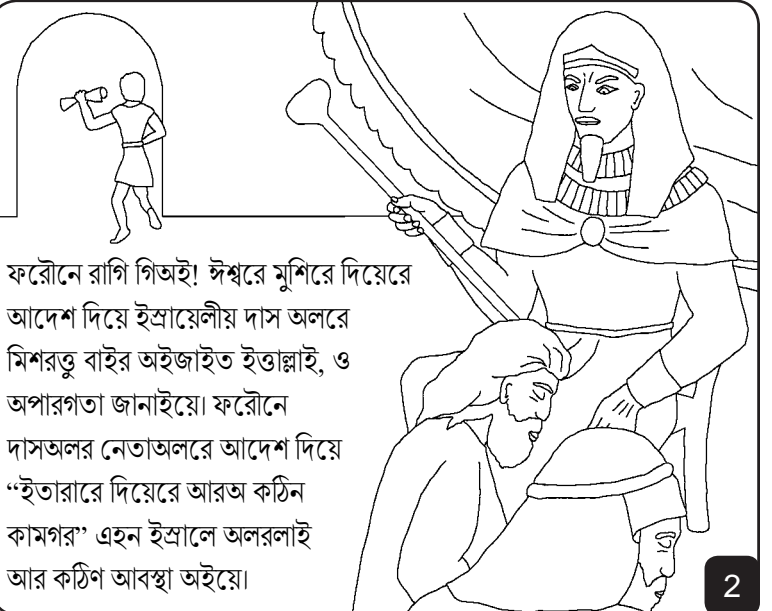 ফরৌনে রাগি গিঅই! ঈশ্বরে মুশিরে দিয়েরে
আদেশ দিয়ে ইস্রায়েলীয় দাস অলরে
মিশরত্তু বাইর অইজাইত ইত্তাল্লাই, ও
অপারগতা জানাইয়ে। ফরৌনে
দাসঅলর নেতাঅলরে আদেশ দিয়ে
“ইতারারে দিয়েরে আরঅ কঠিন
কামগর” এহন ইস্রালে অলরলাই
আর কঠিণ আবস্থা অইয়ে।
2